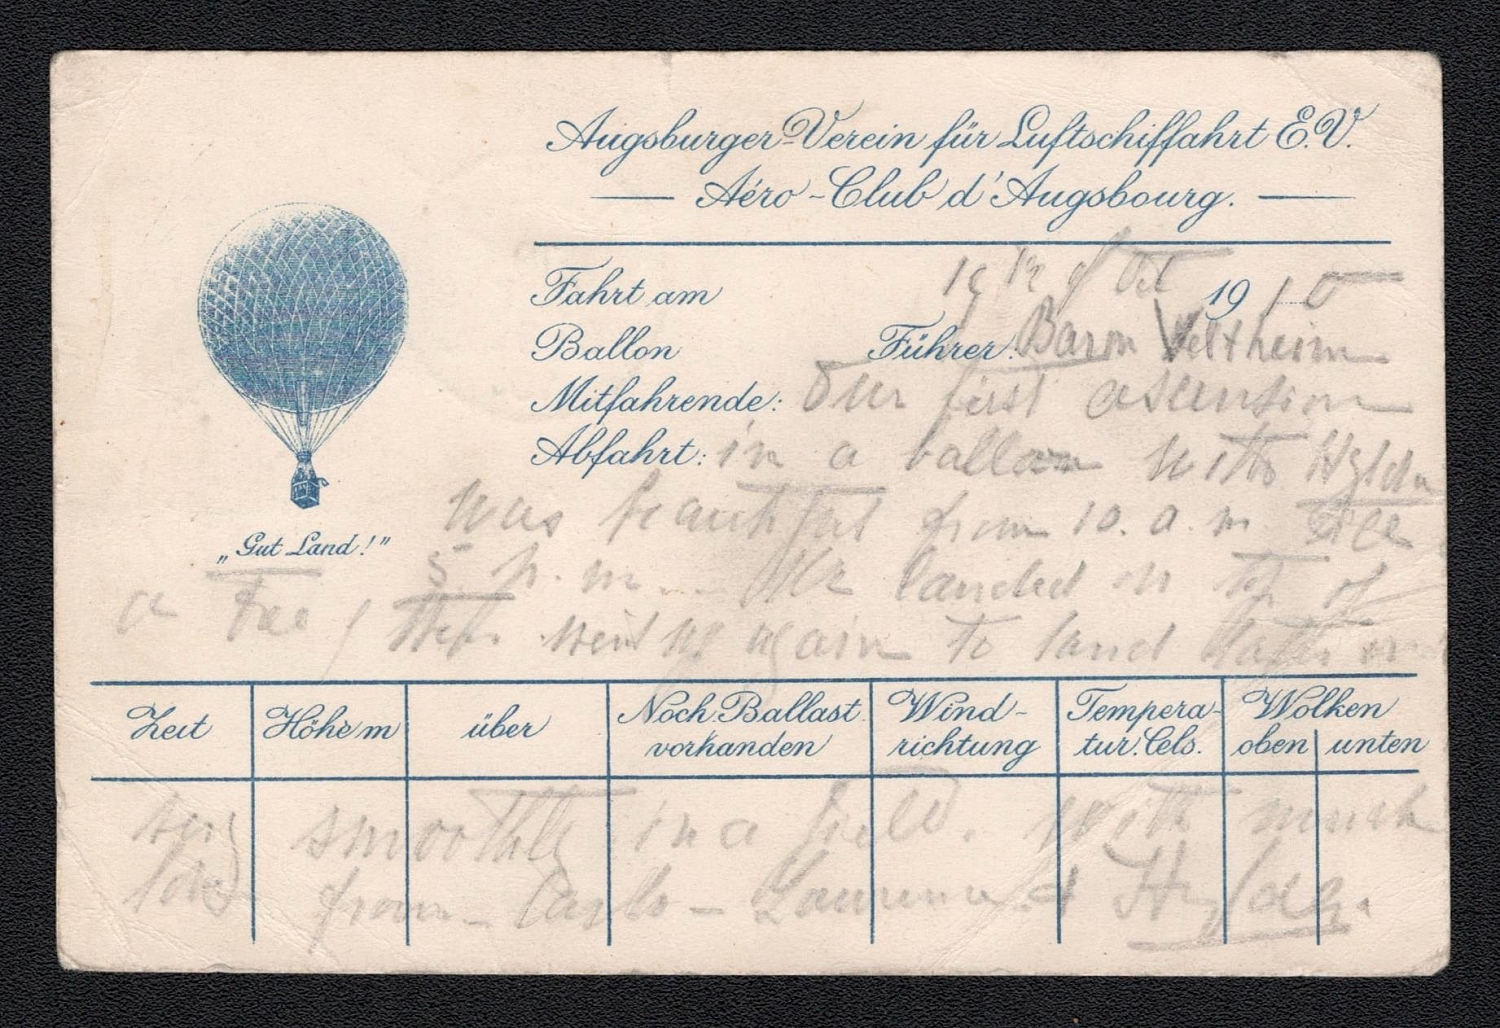 Augsburger-Verein für Luftschiffahrt E.V.
Aéro-Club d'Augsbourg.
Fahrt am 19th of Oct 1910
Ballon Führer: Baron Veltheim
Mitfahrende: Our first ascension
Abfahrt: in a balloon with Hylda
was beautiful from 10. a.m. till
„Gut Land!"
5 p.m. We landed on top of
a Tree / then went up again to land later on
Zeit Höhe m über Noch Ballast vorhanden Wind-richtung Tempera-tur. Cels. Wolken oben unten
very smoothly in a field. With much
love from - Carlo - & Hylda.